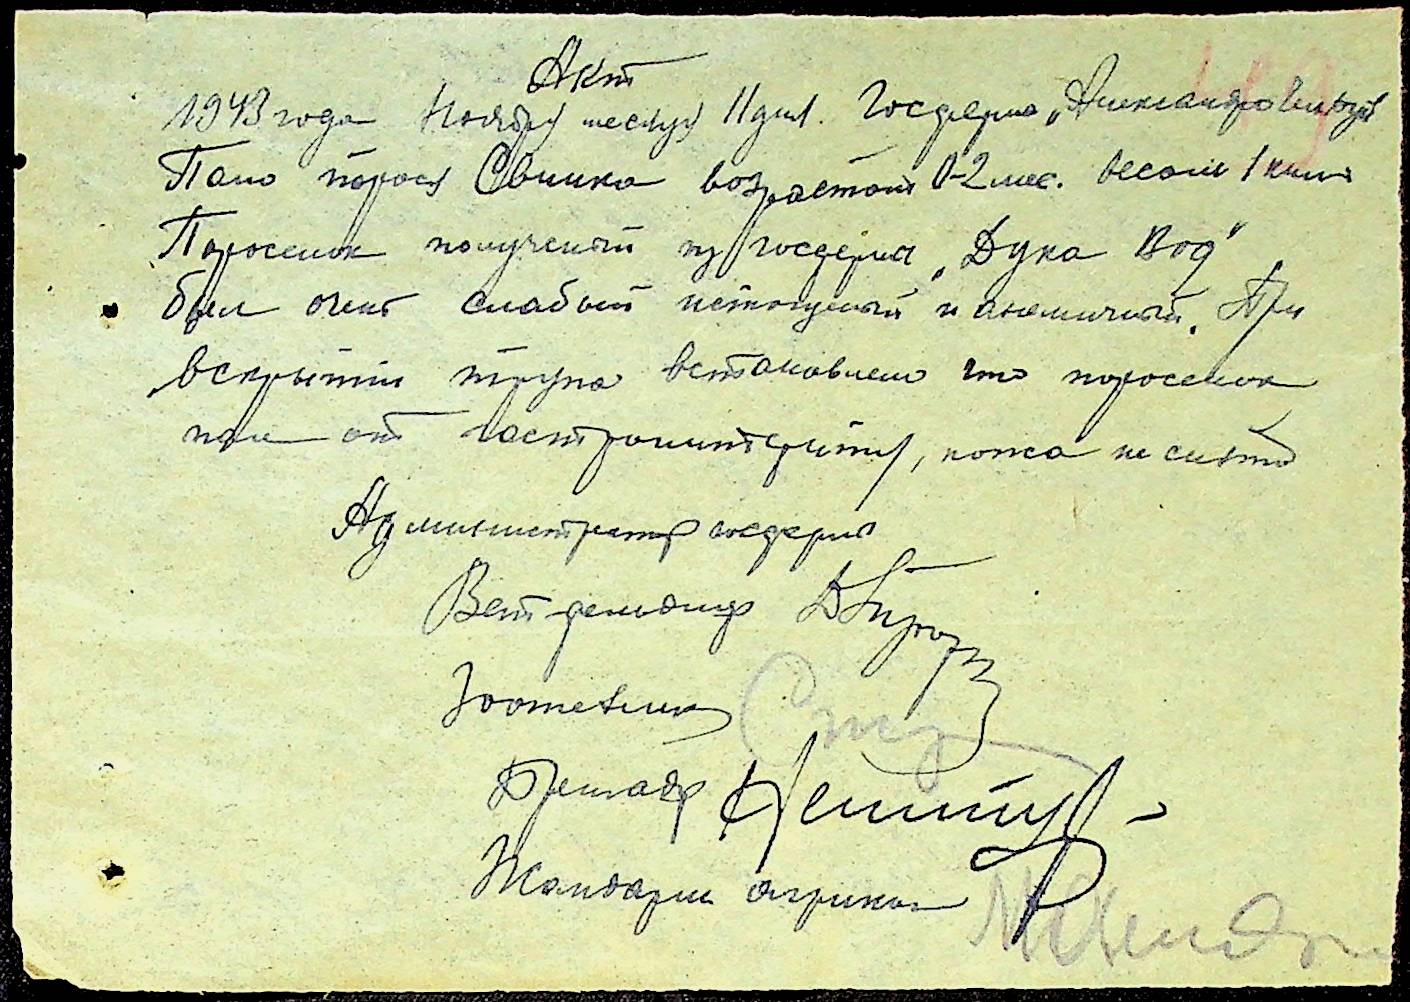 Акт
1943 года Ноября месяця 11 дня. Госферма „Александро
Пало порося Свинка возрастом 0-2 мес. весом 1 кило
Поросенок полученый из госферма „Дука Вод"
был очень слабый истощеный и анемичный. При
вскрытии трупа встановлено что поросенок
пал от гастроэнтерита, кожа не снята
Администратор госферма
Вет фельдшер
Зоотехник
Бригадир
Жандарм агрикол